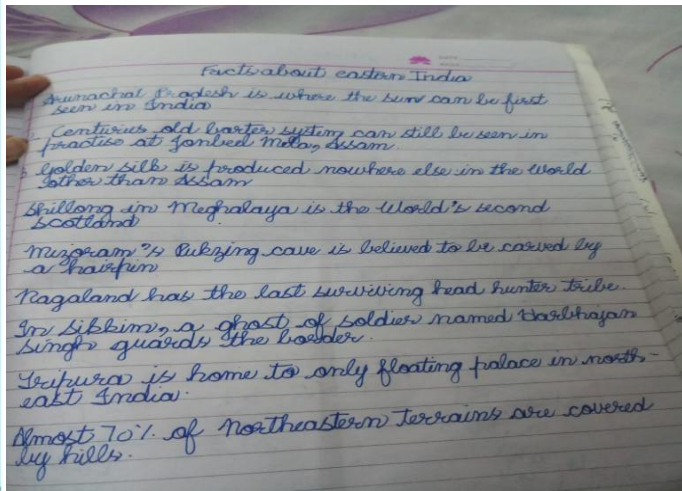 Facts about eastern India
Arunachal Pradesh is where the sun can be first
seen in India
Centuries old barter system can still be seen in
practise at Jonbeel Mela, Assam.
Golden silk is produced nowhere else in the world
other than Assam
Shillong in Meghalaya is the world's second
scotland
Mizoram's Pukzing cave is believed to be carved by
a hairpin
Nagaland has the last surviving head hunter tribe.
In Sikkim, a ghost of soldier named Harbhajan
Singh guards the border.
Tripura is home to only floating palace in north-
east India.
Almost 70% of Northeastern terrains are covered
by hills.